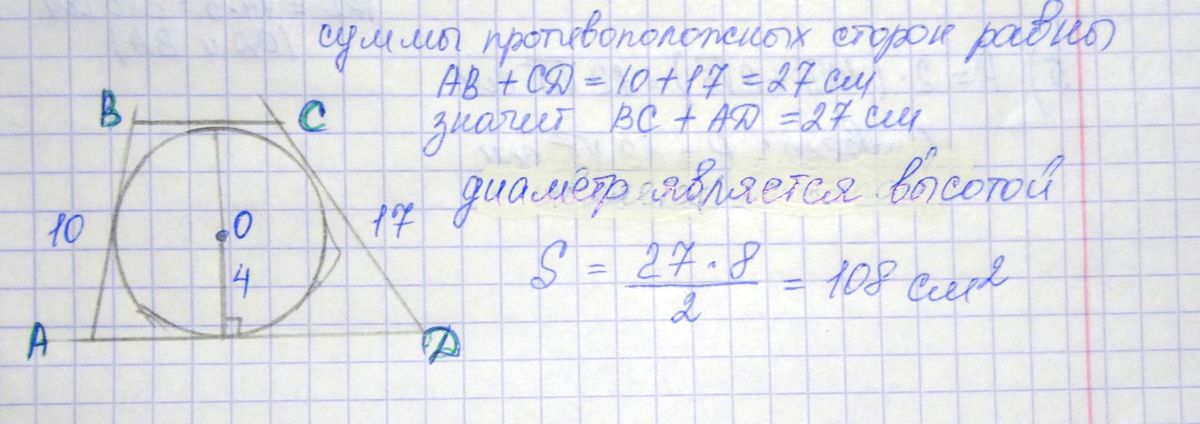 суммы противоположных сторон равны
AB + CD = 10 + 17 = 27 см
значит BC + AD = 27 см
диаметр является высотой
S = 27 · 8 / 2 = 108 см²
B C
10 O 17
4
A D